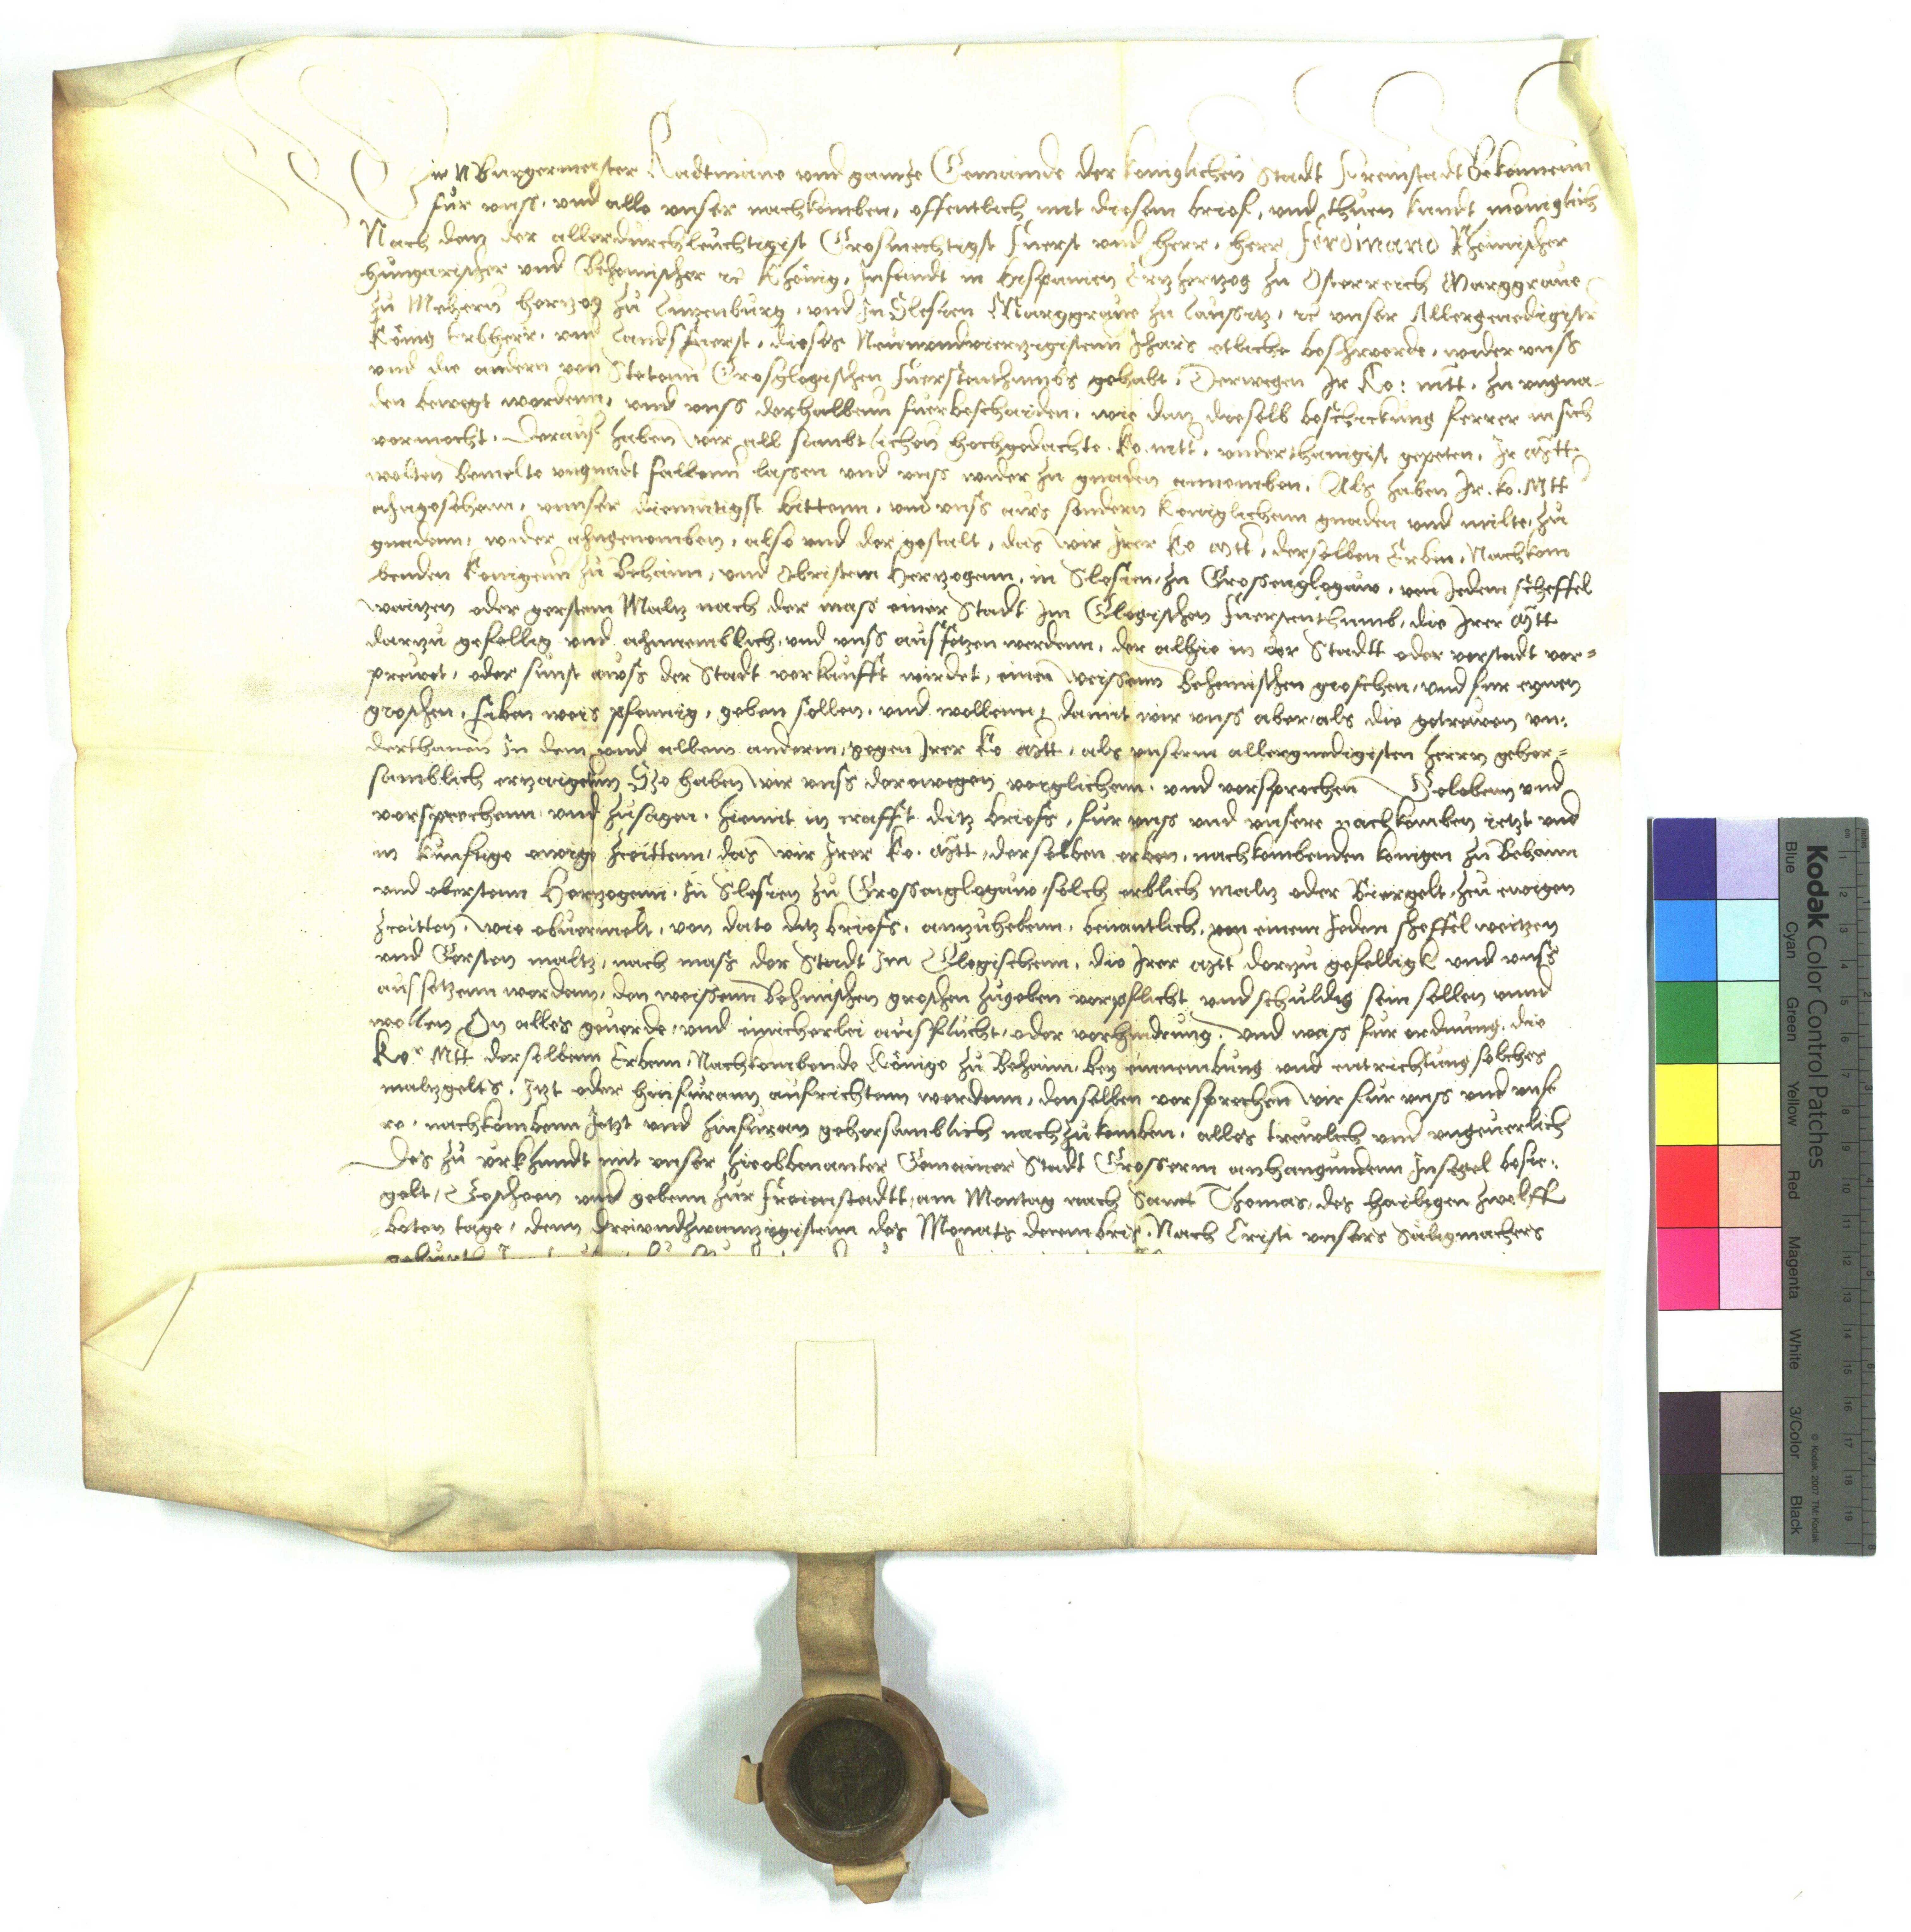 Wir N Burgermeister Radtmanne und gantze Gemainde der koniglichen Stadt Freinstadt Bekennenn
für vnss, vnd alle vnser nachkomben, offentlich mit diesem brief, vnd thuen kundt meniglich
Nach dem der allerdurchleuchtigist Grosmechtigst Fuerst vnd Herr, Herr Ferdinand Rhömischer
Hungarischer vnd Behemischer rc Khönig, Infandt in Hispanien Ertzhertzog zu Osterreich Marggraue
zu Mehern Hertzog zu Lutzenburg, vnd In Slesien Marggraue zu Laussitz, rc vnser Allergenedigister
König Erbherr, vnd Landsfuerst, dieses Neunundviertzigistenn Jhars etliche beschwerde, wider vnss
vnd die andern von Stetenn Grosglogischen Fuerstenthumbs gehabt, Derwegen Ir Ko: mtt. zu vngna-
den bewegt wordenn, vnd vnss derhalbenn fuerbeschaiden, wie dan dieselb beschickung ferrer in sich
vermocht. Derauf haben wir all sambtlichen hochgedachte Ko. mtt. underthanigist gepeten, Ir Mtt.
wolten bemelte vngnadt fallenn lassen vnd vnss wider zu gnaden annemben. Als haben Ir. Ko. Mtt
ahngesehenn, vnnser diemutigst bittenn, vnd vnss aus sondern Koniglichenn gnaden vnd milte, zu
gnadenn, wider ahngenomben, also vnd der gestalt, das wir Irer Ko Mtt, derselben Erben, Nachkom
benden Konigenn zu Behaim, vnd Obristenn Hertzogenn, in Slesien, zu Grossenglogaw, von Jedem scheffel
waitzen oder gersten Maltz nach der mass einer Stadt Im Glogischen Fuerstenthumb, die Irer Mtt
dartzu gefellig vnd ahnnemblich, vnd vnss aussetzen werdenn, der alhie in der Stadt oder vorstadt ver-
preuet, oder sunst auss der Stadt verkaufft wirdet, einen weissenn Behemischen groschen, vnd fur eynen
groschen, siben weis pfennig, geben sollen, vnd wellenn, damit wir vnss aber, als die getrewen vn:
derthanen In dem vnd allem anderm, gegen Irer Ko Mtt, als vnserm allergnedigisten herrn gehor-
samblich ertzaigetenn Szo haben wir vnss derowegen verglichenn, vnd versprochen Gelobenn vnd
versprechenn vnd zusagen, hiemit in crafft ditz briefs, fur vnss vnd vnsere nachkomben ietzt vnd
in kunftige ewige zeittenn, das wir Irer Ko. Mtt, derselben erben, nachkombenden konigen zu Behaim
vnd oberstenn Hertzogenn, In Slesien zu Grossenglogaw, solch erblich maltz oder Biergelt, zcu ewigen
Zceitten, wie obuermelt, von dato ditz briefs, antzuhebenn, benantlich, von einem Jeden scheffel weitzen
vnd Gersten maltz, nach mass der Stadt Im Glogischenn, die Irer Mtt dortzu gefelligk vnd vnss
aussetzenn werdenn, den weissenn behmischen groschen zugeben verpflicht vnd schuldig sein sollen vnnd
wollen On alles geuerde, vnd einicherlei ausflucht, oder verhindrung. Vnd wass fur ordnung, die
Ko: Mtt derselbenn Erbenn, Nachkombende Könige zu Behaim, bey einnembung vnd entrichtung solches
maltzgelts, Itzt oder hinfurann aufrichtenn werdenn, denselben versprechen wir fur vnss vnd vnse
re, nachkombenn Jetzt vnd hinfuran gehorsamblich nachzukomben, alles treulich vnd vngeuerlich
Des zu vrkhundt mit vnser hieobbenanter Gemainer Stadt Grosserm anhangundenn Insigel besie:
gelt, Geschehen vnd gebenn zur Freienstadtt, am Montag nach Sanct Thomas, des hailigen zwelff
boten tage, denn dreiundzwantzigistenn des Monats decembris, Nach Cristi vnsers Säligmachers
geburt
Kodak Color Control Patches
Blue Cyan Green Yellow Red Magenta White 3/Color Black
© Kodak, 2007 TM: Kodak
cm 1 2 3 4 5 6 7 8 9 10 11 12 13 14 15 16 17 18 19
inches 1 2 3 4 5 6 7 8